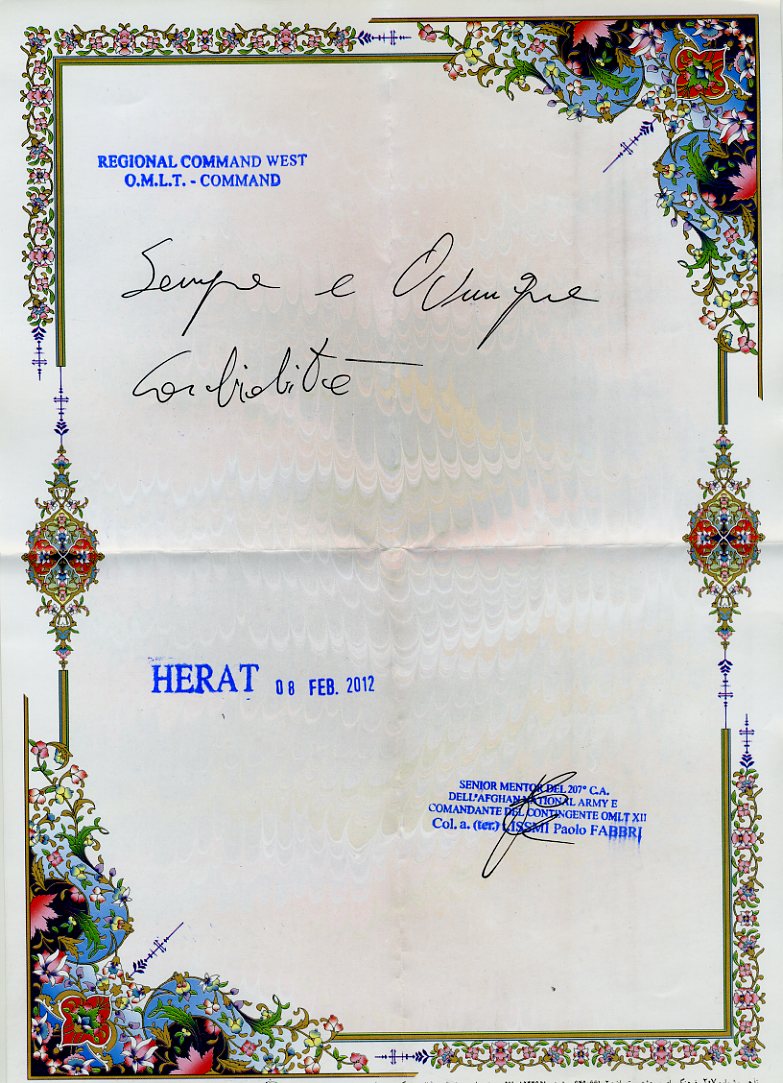 REGIONAL COMMAND WEST
O.M.L.T. - COMMAND
Sempre e Ovunque
Cordialità
HERAT 08 FEB. 2012
SENIOR MENTOR DEL 207° C.A.
DELL'AFGHAN NATIONAL ARMY E
COMANDANTE DEL CONTINGENTE OMLT XII
Col. a. (ter.) t.ISSMI Paolo FABBRI